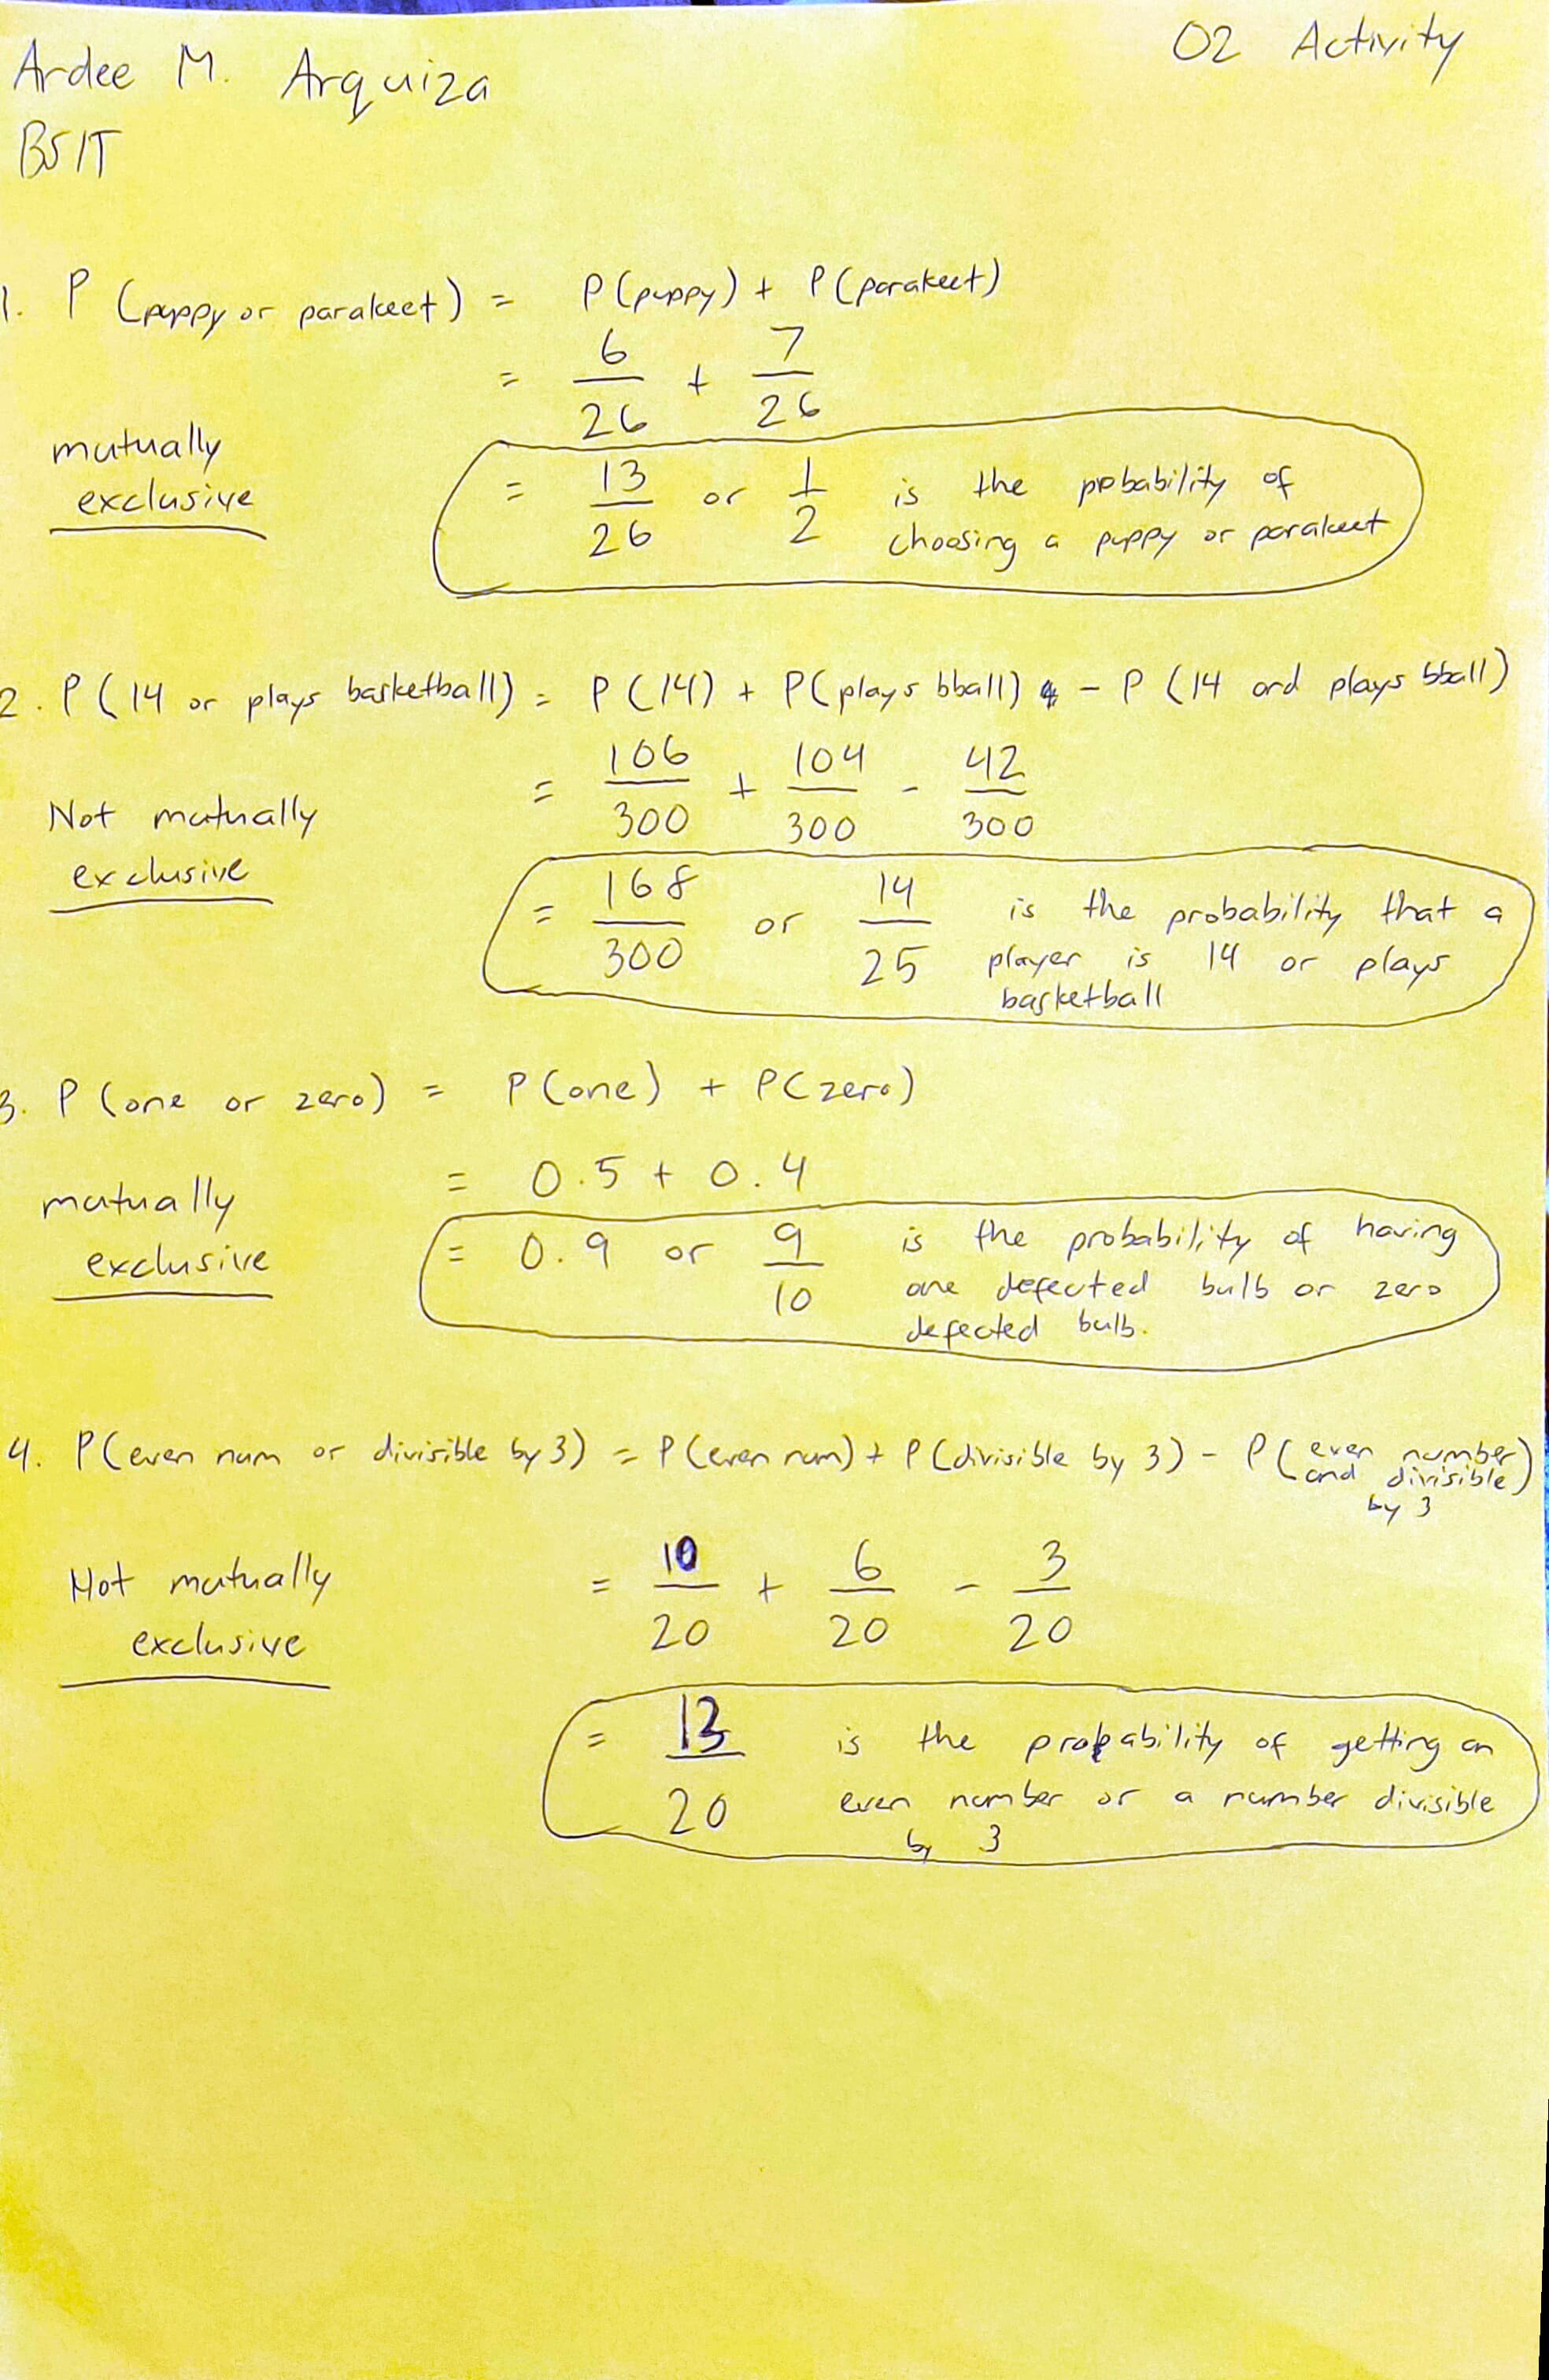 O2 Activity
Ardee M. Arquiza
BSIT
1. P (puppy or parakeet) = P(puppy) + P(parakeet)
= 6/26 + 7/26
mutually
exclusive
= 13/26 or 1/2 is the probability of
choosing a puppy or parakeet
2. P(14 or plays basketball) = P(14) + P(plays bball) - P(14 and plays bball)
= 106/300 + 104/300 - 42/300
Not mutually
exclusive
= 168/300 or 14/25 is the probability that a
player is 14 or plays
basketball
3. P(one or zero) = P(one) + P(zero)
= 0.5 + 0.4
mutually
exclusive
= 0.9 or 9/10 is the probability of having
one defected bulb or zero
defected bulb.
4. P(even num or divisible by 3) = P(even num) + P(divisible by 3) - P(even number
and divisible)
by 3
Not mutually
exclusive
= 10/20 + 6/20 - 3/20
= 13/20 is the probability of getting an
even number or a number divisible
by 3